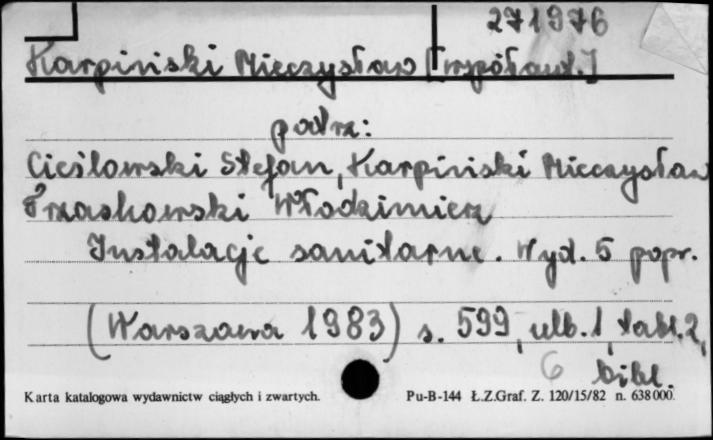 271976
Karpiński Mieczysław [współaut.]
patrz:
Cieślowski Stefan, Karpiński Mieczysław
Przaskowski Włodzimierz
Instalacje sanitarne. Wyd. 5 popr.
(Warszawa 1983) s. 599, nlb. 1, tabl. 2,
6 bibl.
Karta katalogowa wydawnictw ciągłych i zwartych. Pu-B-144 Ł.Z.Graf. Z. 120/15/82 n. 638000.